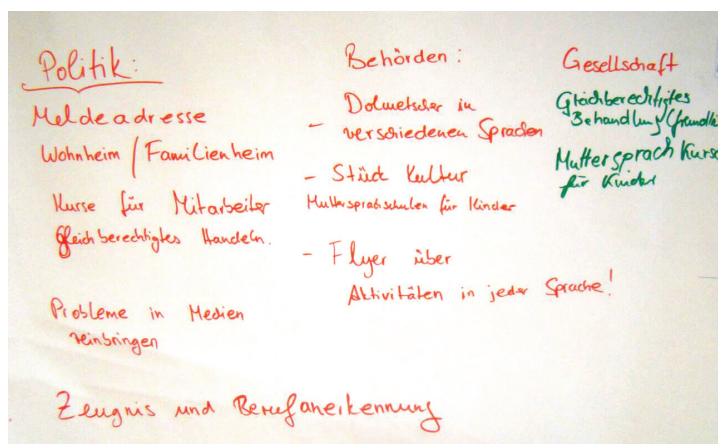 Politik:
Meldeadresse
Wohnheim / Familienheim
Kurse für Mitarbeiter
gleichberechtigtes Handeln.
Probleme in Medien
reinbringen
Zeugnis und Berufanerkennung
Behörden:
- Dolmetscher in
verschiedenen Sprachen
- Stück Kultur
Muttersprachschulen für Kinder
- Flyer über
Aktivitäten in jeder Sprache!
Gesellschaft
Gleichberechtigtes
Behandlung
Muttersprach Kurse
für Kinder